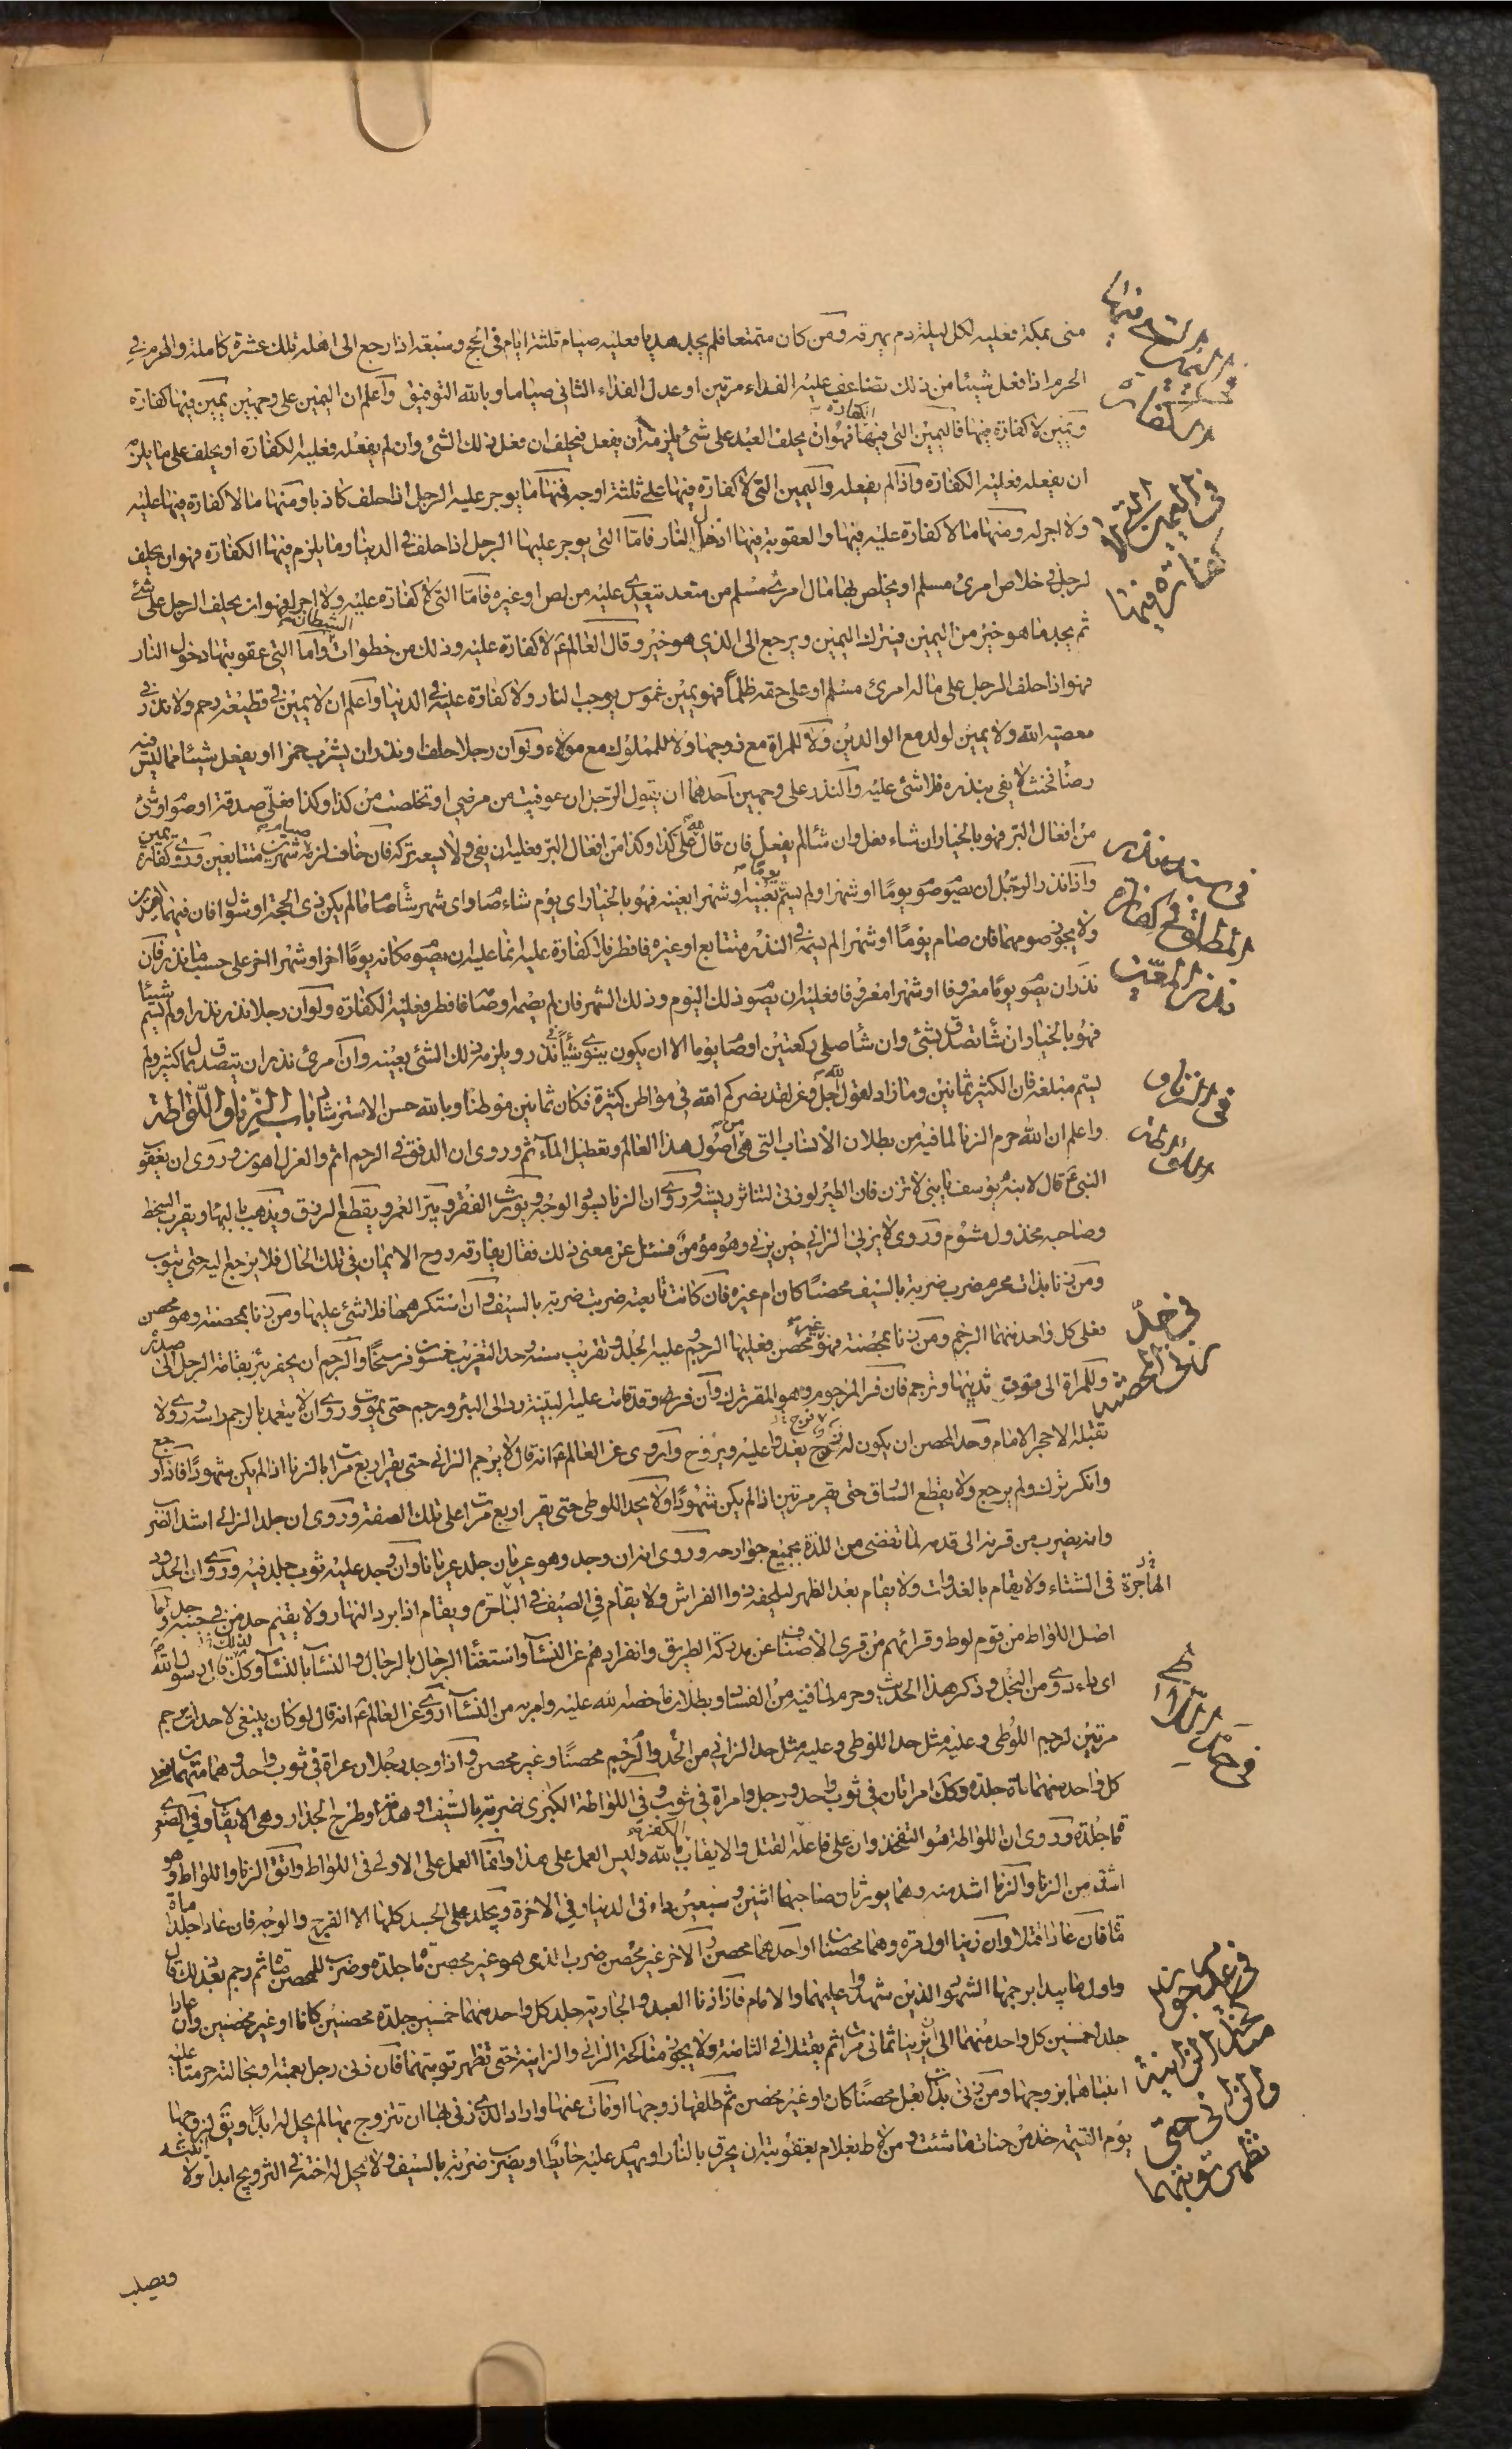 منى بمكة فعليه لكل ليلة دم يهرقه ومن كان متمتعا فلم يجد هديا فعليه صيام ثلثة ايام في الحج وسبعة اذا رجع الى اهله تلك عشرة كاملة والمحرم في
الحرم اذا فعل شيئا من ذلك تضاعف عليه الفداء مرتين او عدل الفداء الثاني صياما وبالله التوفيق واعلم ان اليمين على وجهين يمين فيها كفارة
ويمين لا كفارة فيها فاليمين التي فيها الكفارة فهو ان يحلف العبد على شئ يلزمه ان يفعل فيحلف ان فعل ذلك الشئ وان لم يفعله فعليه الكفارة او يحلف على ما يلزمه
ان يفعله فعليه الكفارة واذا لم يفعله واليمين التي لا كفارة فيها على ثلثة اوجه فمنها ما يوجر عليه الرجل اذا حلف كاذبا ومنها ما لا كفارة فيها عليه
ولا اجر له ومنها ما لا كفارة عليه فيها والعقوبة فيها ادخل النار فاما التي يوجر عليها الرجل اذا حلف في الدنيا وما يلزم فيها الكفارة فهو ان يحلف
لرجل في خلاص امرئ مسلم او يخلص بها مال امرئ مسلم من متعد يتعدى عليه من لص او غيره فاما التي لا كفارة عليه ولا اجر له فهو ان يحلف الرجل على شئ
ثم يجد ما هو خير من اليمين فيترك اليمين ويرجع الى الذي هو خير وقال العالم ع لا كفارة عليه وذلك من خطوات الشيطان واما التي عقوبتها دخول النار
فهو اذا حلف الرجل على مال امرئ مسلم او على حقه ظلما فهو يمين غموس يوجب النار ولا كفارة عليه في الدنيا واعلم ان لا يمين في قطيعة رحم ولا نذر في
معصية الله ولا يمين لولد مع الوالدين ولا للمراة مع زوجها ولا للمملوك مع مولاه ولو ان رجلا حلف او نذر ان يشرب خمرا او يفعل شيئا مما ليس فيه
رضا فحنث لا يفي بنذره فلا شئ عليه والنذر على وجهين احدهما ان يقول الرجل ان عوفيت من مرضي او تخلصت من كذا وكذا فعلي صدقة او صوم او شئ
من افعال البر فهو بالخيار ان شاء فعل وان شاء لم يفعل فان قال لله على كذا وكذا من افعال البر فعليه ان يفي ولا يسعه تركه فان خالف لزمه صيام شهرين متتابعين وروى كفارة يمين
واذا نذر الرجل ان يصوم يوما او شهرا ولم يسم يوما بعينه او شهرا بعينه فهو بالخيار اى يوم شاء صام واى شهر شاء صام ما لم يكن ذي الحجة او شوال فان فيهما العيدين
ولا يجوز صومهما فان صام يوما او شهرا لم يسمه في النذر متتابع او غيره فافطر فلا كفارة عليه انما عليه ان يصوم مكانه يوما اخر او شهرا اخر على حسب ما نذر فان
نذر ان يصوم يوما معروفا او شهرا معروفا فعليه ان يصوم ذلك اليوم وذلك الشهر فان لم يصمه او صام فافطر فعليه الكفارة ولو ان رجلا نذر نذرا ولم يسم شيئا
فهو بالخيار ان شاء تصدق بشئ وان شاء صلى ركعتين او صام يوما الا ان يكون ينوي شيئا في نذر ويلزمه ذلك الشئ بعينه وان امرئ نذر ان يتصدق بمال كثير ولم
يسم مبلغه فان الكثير ثمانين وما زاد لقول الله جل وعز لقد نصركم الله في مواطن كثيرة فكان ثمانين موطنا وبالله حسن الاسترشاد باب الزنا واللواطة
واعلم ان الله حرم الزنا لما فيه من بطلان الانساب التي هي اصول هذا العالم وتعطيل الماء اثم وروى ان الدفق في الرحم اثم والعزل اهون وروى ان يعقوب
النبي ع قال لابنه يوسف يا بني لا تزن فان الطير لو زنى لتناثر ريشه وروى ان الزنا يسود الوجه ويورث الفقر ويبتر العمر ويقطع الرزق ويذهب بالبهاء ويقرب السخط
وصاحبه مخذول مشوم وروى لا يزني الزاني حين يزني وهو مؤمن فسئل عن معنى ذلك فقال يفارقه روح الايمان في تلك الحال فلا يرجع اليه حتى يتوب
ومن زنا بذات محرم ضرب ضربة بالسيف محصنا كان ام غيره فان كانت تابعته ضربت ضربة بالسيف وان استكرهها فلا شئ عليها ومن زنا بمحصنة وهو محصن
فعلى كل واحد منهما الرجم ومن زنا بمحصنة فهو غير محصن فعليها الرجم وعليه الجلد وتغريب سنة وحد التغريب خمسون فرسخا والرجم ان يحفر بئر بقامة الرجل الى صدره
وللمراة الى فوق ثدييها وترجم فان فر المرجوم وهو المقر ترك وان فر وقد قامت عليه البينة رد الى البئر ورجم حتى يموت وروى ان لا يتعمد بالرجم راسه وروى لا
تقتله الا حجر الامام وحد المحصن ان يكون له فرج يغدوا عليه ويروح واروى عن العالم ع انه قال لا يرجم الزاني حتى يقر اربع مرات بالزنا اذا لم يكن شهود فاذا رجع
وانكر ترك ولم يرجم ولا يقطع السارق حتى يقر مرتين اذا لم يكن شهود ولا يحد اللوطي حتى يقر اربع مرات على تلك الصفة وروى ان جلد الزاني اشد الضرب
وانه يضرب من قرنه الى قدمه لما تقضى من اللذة بجميع جوارحه وروى انه ان وجد وهو عريان جلد عريانا وان وجد عليه ثوب جلد فيه وروى ان الحدود
في الشتاء ولا يقام بالغدوات ولا يقام بعد الظهر ليلحقه دفا الفراش ولا يقام في الصيف في الهاجرة ويقام اذا برد النهار ولا يقيم حد من في جنبه حد واما
اصل اللواط من قوم لوط وفرارهم من قرى الاضياف عن مدركة الطريق وانفرادهم عن النساء واستغناء الرجال بالرجال والنساء بالنساء
اى داء ادوى من البخل وذكر هذا الحديث وحرم لما فيه من الفساد وبطلان ما حض الله عليه وامر به من النساء اروى عن العالم ع انه قال لو كان ينبغي لاحد ان يرجم
مرتين لرجم اللوطي وعليه مثل حد اللوطي وعليه مثل حد الزاني من الحد والرجم محصنا وغير محصن واذا وجد رجلان عراة في ثوب واحد وهما متهمان فعلى
كل واحد منهما ماة جلدة وكذا امراتان في ثوب واحد ورجل وامراة في ثوب وفي اللواطة الكبرى ضربة بالسيف او هدمة او طرح الجدار وهي الايقاب وفي الصغرى
ماة جلدة وروى ان اللواطة هو التفخذ وان على فاعله القتل والايقاب الكفر بالله وليس العمل على هذا وانما العمل على الاولى في اللواط واتق الزنا واللواط وهو
اشد من الزنا والزنا اشد منه وهما يورثان صاحبهما اثنين وسبعين داء في الدنيا وفي الاخرة ويجلد على الجسد كلها الا الفرج والوجه فان عادا جلدا ماة
ماة فان عادا قتلا وان زنيا اول مرة وهما محصنان او احدهما محصن والاخر غير محصن ضرب الذي هو غير محصن ماة جلدة وضرب المحصن ماة ثم رجم بعد ذلك
واول ما يبدا برجمها الشهود الذين شهدوا عليهما والامام فاذا زنا العبد والجارية جلد كل واحد منهما خمسين جلدة محصنين كانا او غير محصنين وان عادا
جلدا خمسين كل واحد منهما الى ان يزنيا ثماني مرات ثم يقتلا في الثامنة ولا يجوز مناكحة الزاني والزانية حتى تظهر توبتهما فان زنى رجل بعمته او بخالته حرمتا عليه
ابنتاهما بزوجها ومن زنى بذات بعل محصنا كان او غير محصن ثم طلقها زوجها او مات عنها واراد الذي زنى بها ان تتزوج بها لم يحل له ابدا ويق لزوجها
يوم القيمة خذ من حسناته ما شئت ومن لاط بغلام بعقوبة ان يحرق بالنار او يهدم عليه حايطا ويضرب ضربة بالسيف ولا يحل له اخته في التزويج ابدا ولا
ويصلب
في اليمين التي لا
كفارة فيها
في سنة نذر
المطلق في كفارة
نذر المعين
في الزنا و
اللواطة
في حد
زنا المحصن
في حد اللواط
في عدم جواز
مناكحة الزانية
والزاني حتى
تظهر توبتهما